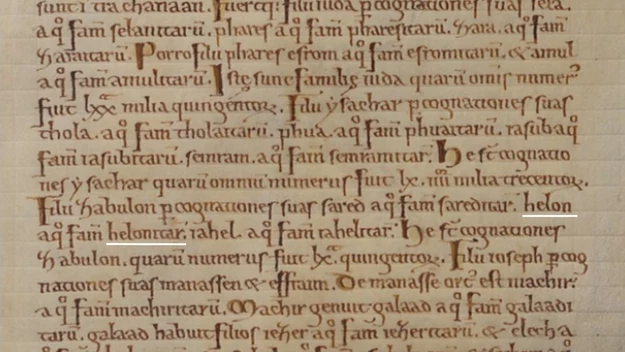 sunt i tra chanaan. Fueruntq; filii iuda p cognationes suas sela.
a q̄ fam̄ selanitarū. phares a q̄ fam̄ pharesitarū. zara. a q̄ fam̄
zaraitarū. Porro filii phares esrom a q̄ fam̄ esromitarū. & amul
a q̄ fam̄ amulitarū. Iste sunt familie iuda quarū omīs numer᷒
fuit lxx milia quingentoꝝ. Filii ysachar p cognationes suas
thola. a q̄ fam̄ tholaitarū. phua. a q̄ fam̄ phuaitarū. iasub a q̄
fam̄ iasubitarū. semram. a q̄ fam̄ semramitar̄. He sr̄ cognatio
nes ysachar quarū omniū numerus fuit lx. iiii milia trecentoꝝ.
Filii zabulon p cognationes suas sared a q̄ fam̄ sareditar̄. helon
a q̄ fam̄ helonitar̄. iahel. a q̄ fam̄ iahelitar̄. He sr̄ cognationes
zabulon. quarū numerus fuit lx quingentoꝝ. Filii ioseph p cog
nationes suas manassen & effraim. De manasse ort᷒ est machir.
a q̄ fam̄ machiritarū. Machir genuit galaad a q̄ fam̄ galaadi
tarū. galaad habuit filios iezer a q̄ fam̄ iezeritarū. & elech a